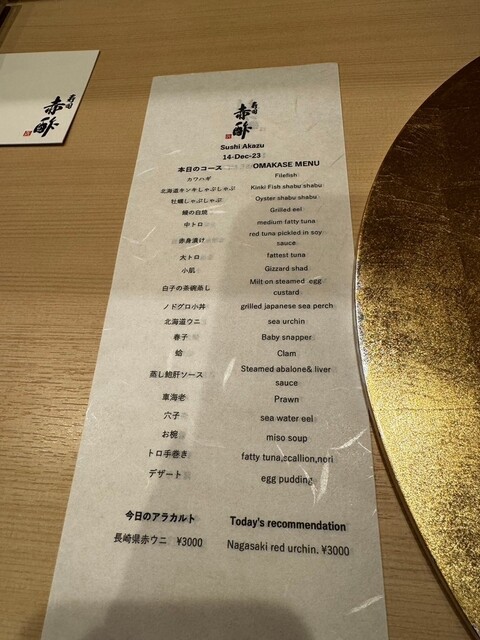 寿司
赤酢
寿司
赤酢
Sushi Akazu
14-Dec-23
本日のコース OMAKASE MENU
カワハギ Filefish
北海道キンキしゃぶしゃぶ Kinki Fish shabu shabu
牡蠣しゃぶしゃぶ Oyster shabu shabu
鰻の白焼 Grilled eel
中トロ medium fatty tuna
赤身漬け red tuna pickled in soy
sauce
大トロ fattest tuna
小肌 Gizzard shad
白子の茶碗蒸し Milt on steamed egg
custard
ノドグロ小丼 grilled japanese sea perch
北海道ウニ sea urchin
春子 Baby snapper
蛤 Clam
蒸し鮑肝ソース Steamed abalone& liver
sauce
車海老 Prawn
穴子 sea water eel
お椀 miso soup
トロ手巻き fatty tuna,scallion,nori
デザート egg pudding
今日のアラカルト Today's recommendation
長崎県赤ウニ ¥3000 Nagasaki red urchin. ¥3000